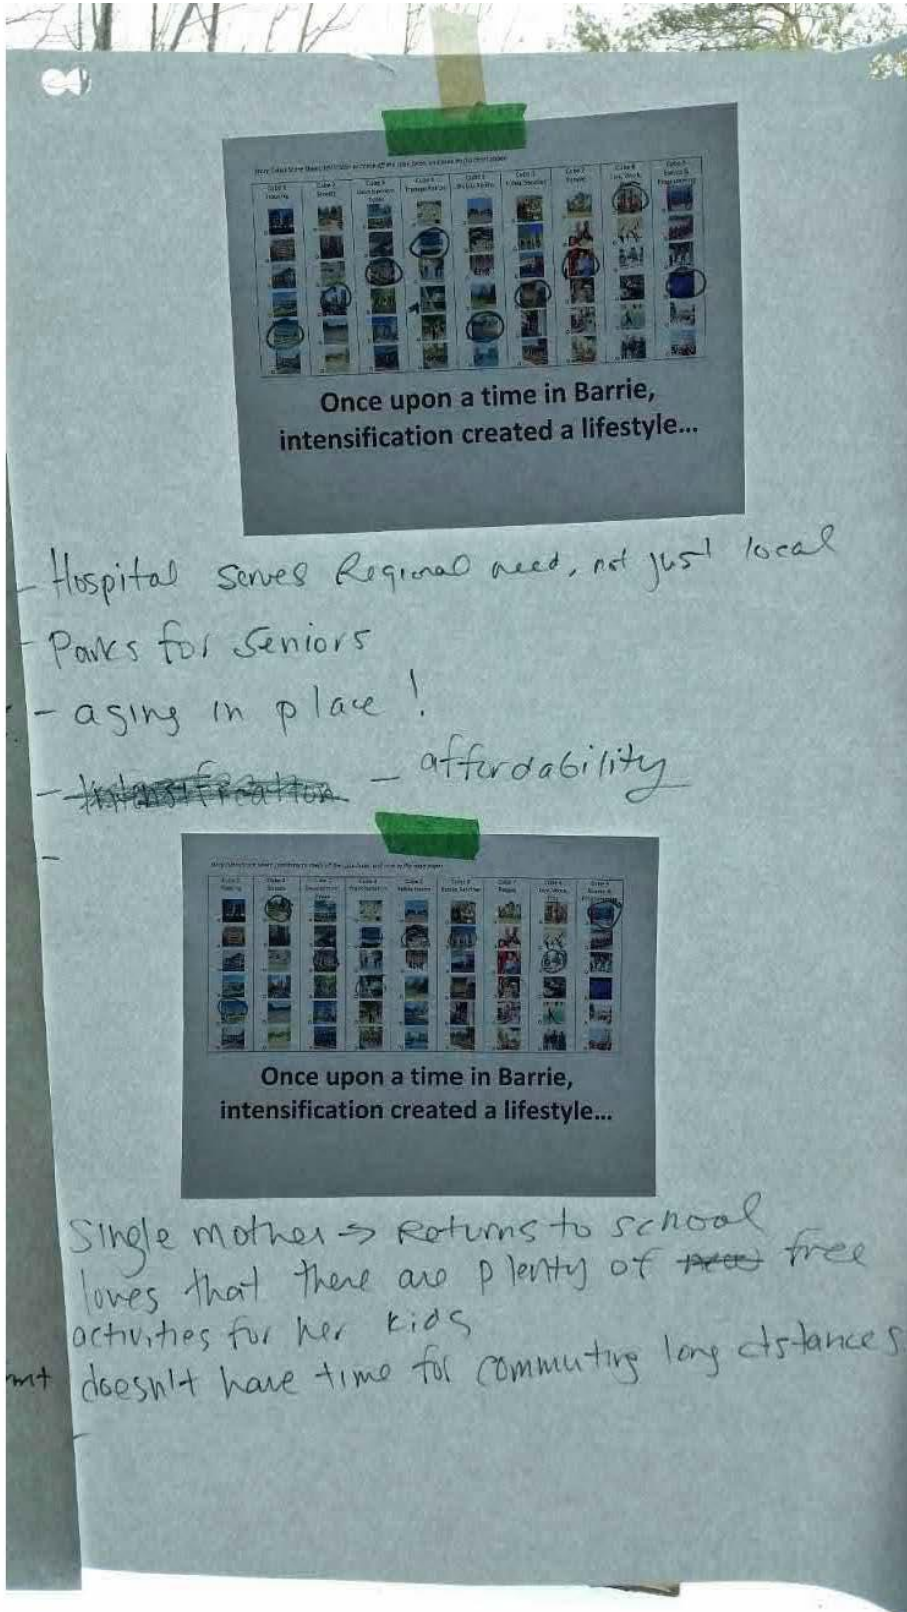 Cube 1
Housing
Cube 2
Streets
Cube 4
Transportation
Cube 7
People
Once upon a time in Barrie,
intensification created a lifestyle...
- Hospital serves Regional need, not just local
- Parks for Seniors
- aging in place!
- Intensification - affordability
-
Once upon a time in Barrie,
intensification created a lifestyle...
Single mother → Returns to school
loves that there are plenty of free
activities for her kids
mt doesn't have time for commuting long distances
-